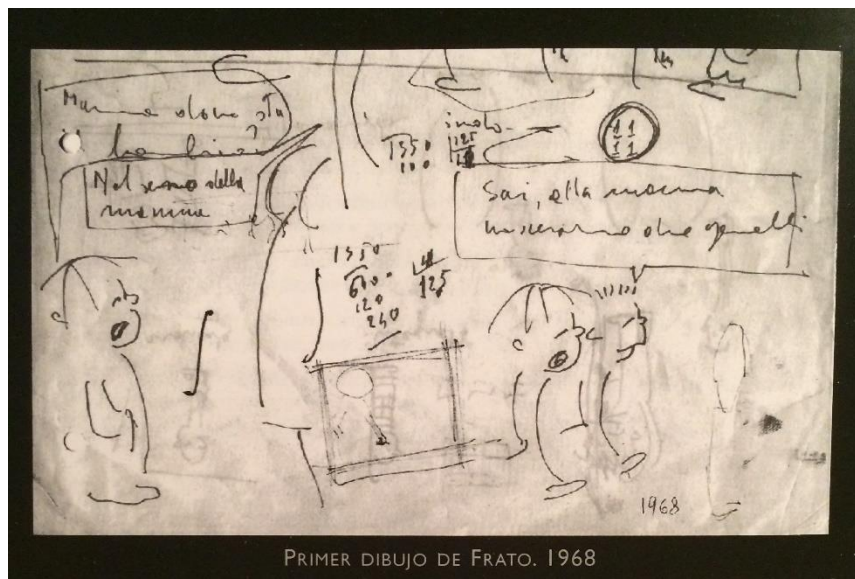 Mamma dove sta
il bambino?
Nel seno della
mamma
1350
100
125
11
11
Sai, alla mamma
nasceranno due gemelli
1350
600
120
240
125
1968
PRIMER DIBUJO DE FRATO. 1968